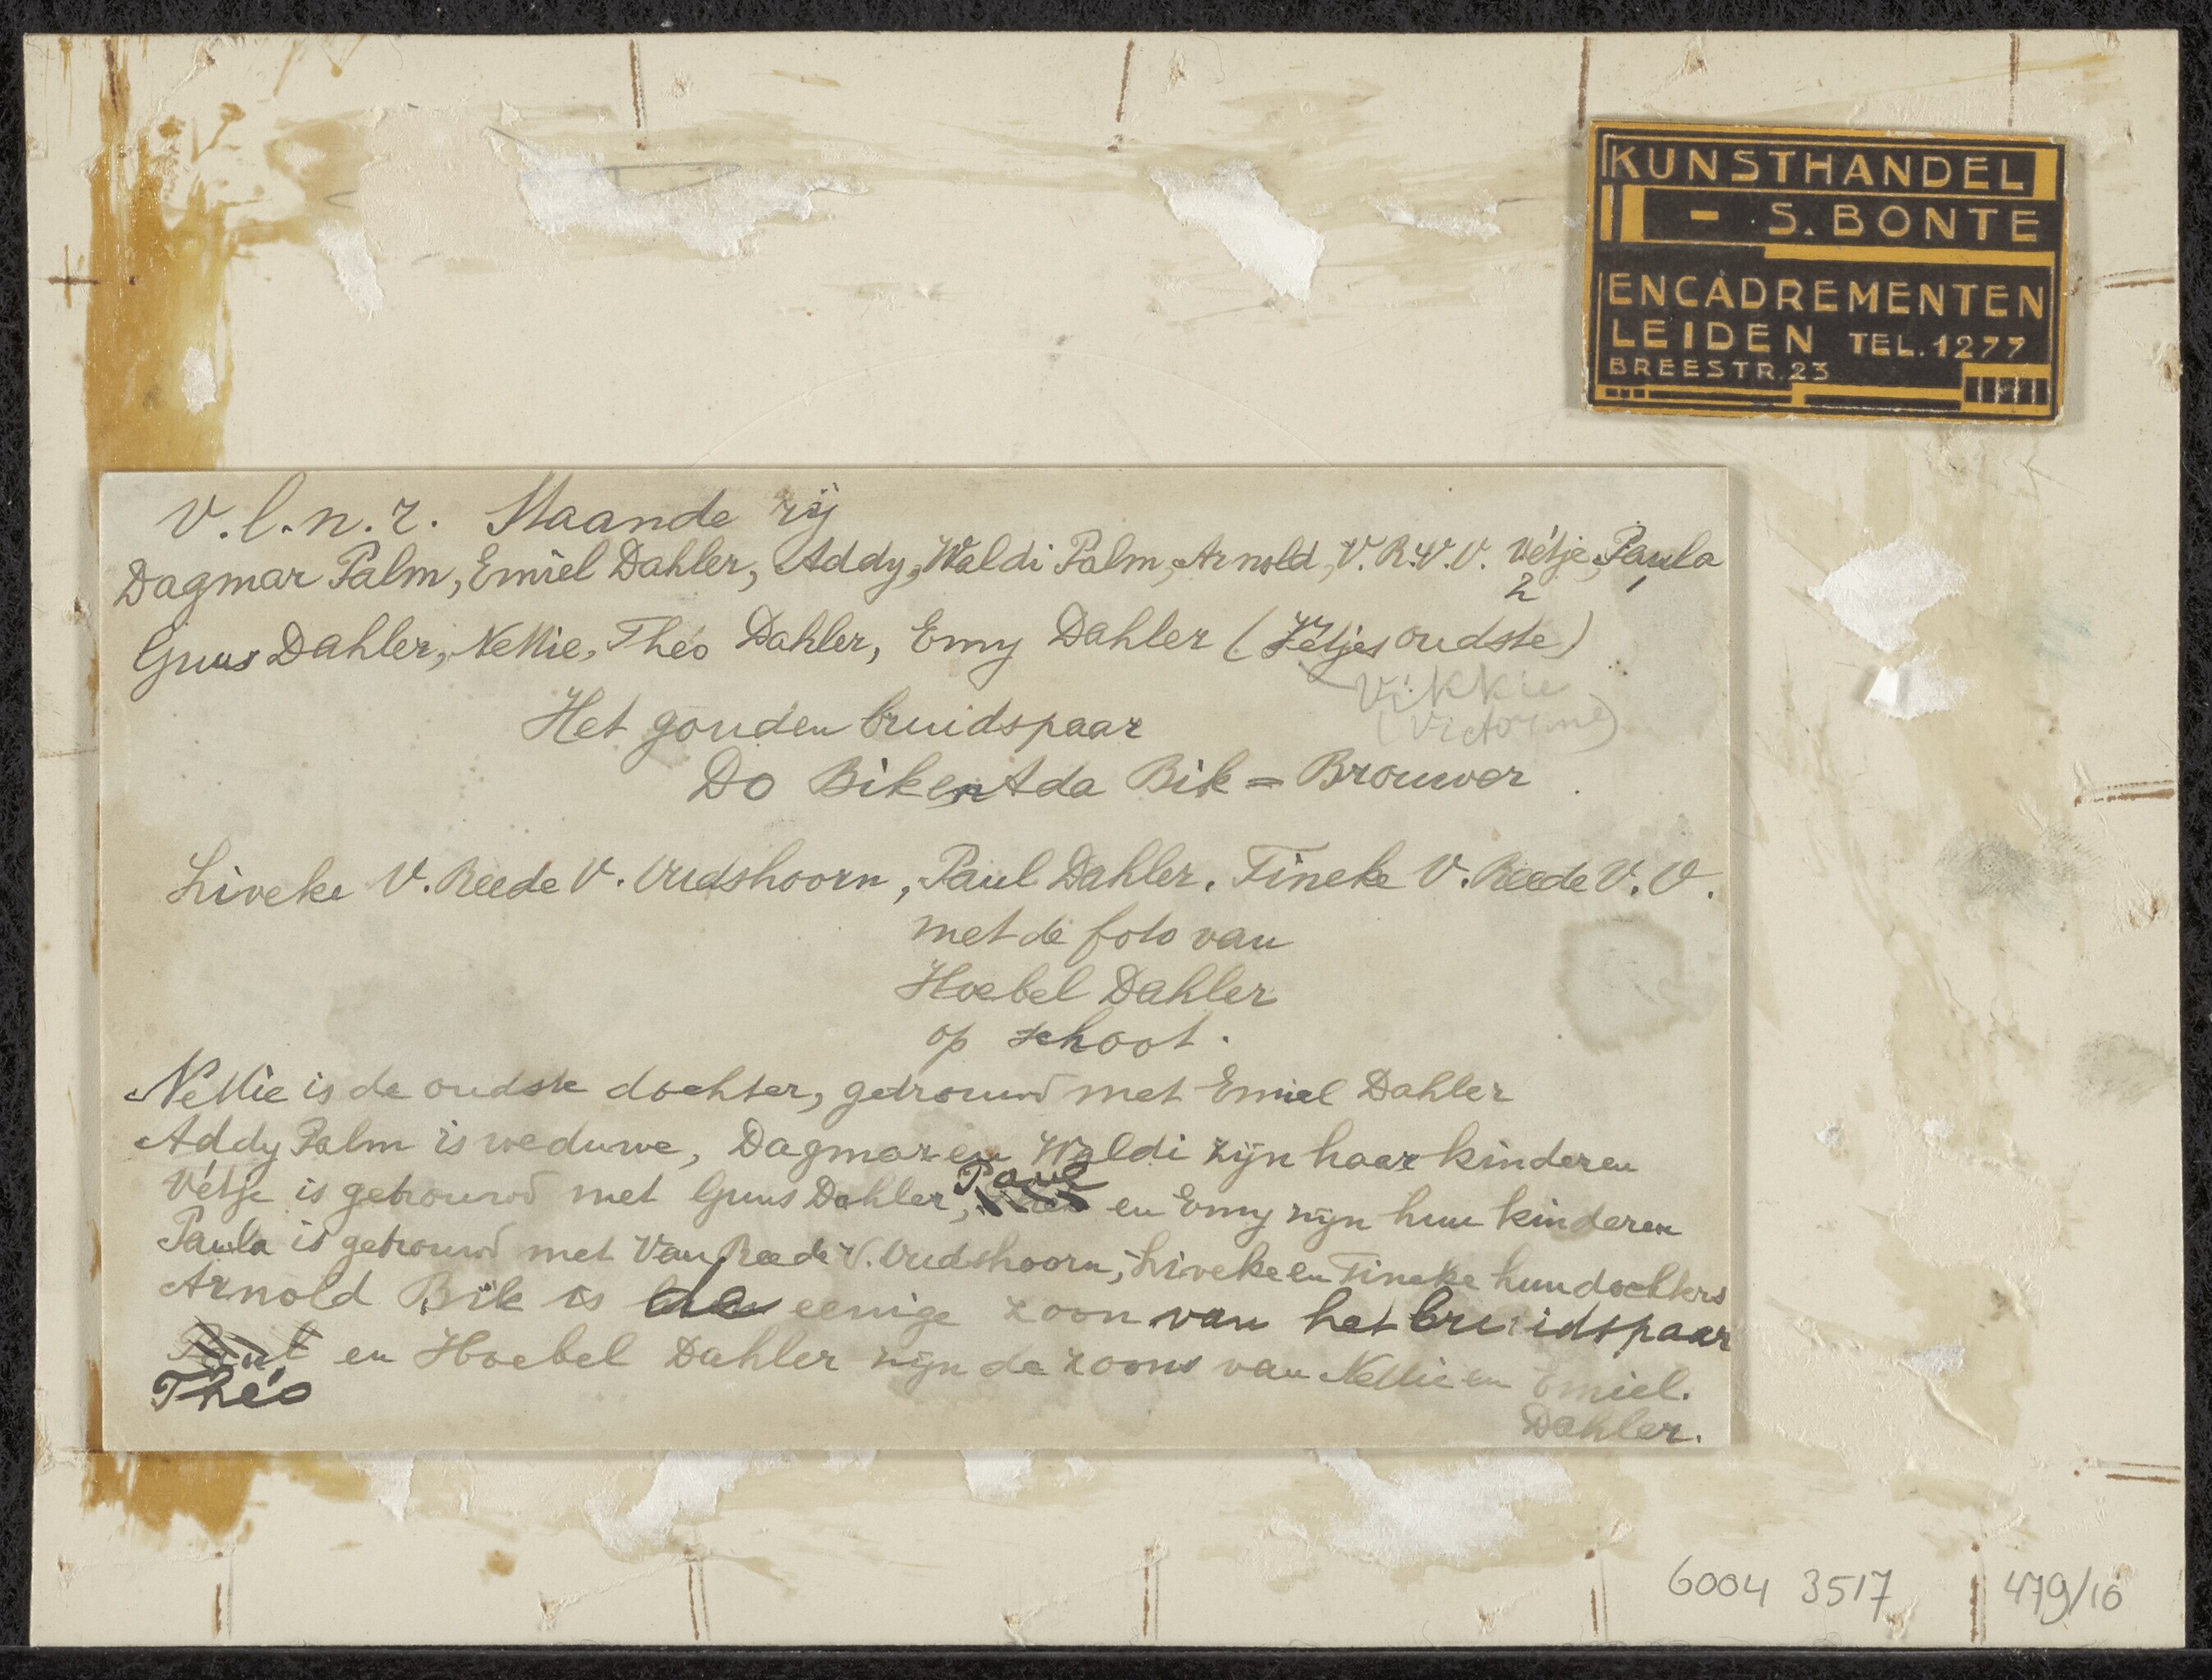 KUNSTHANDEL
- S. BONTE
ENCADREMENTEN
LEIDEN TEL. 1277
BREESTR. 23
V.l.n.r. Staande rij
Dagmar Palm, Emiel Dahler, Addy, Waldi Palm, Arnold, V.R.V.O. Vétje, Paula
2 1
Guus Dahler, Nellie, Théo Dahler, Emy Dahler (Vétjes oudste)
Vikkie
(Victorine)
Het gouden bruidspaar
Do Bik en Ada Bik = Brouwer
Liveke V. Reede V. Oudshoorn, Paul Dahler, Tineke V. Reede V. O.
met de foto van
Hoebel Dahler
op schoot.
Nellie is de oudste dochter, getrouwd met Emiel Dahler
Addy Palm is weduwe, Dagmar en Waldi zijn haar kinderen
Paul
Vétje is getrouwd met Guus Dahler, en Emy zijn hun kinderen
Paula is getrouwd met Van Reede V. Oudshoorn, Liveke en Tineke hun dochters
Arnold Bik is de eenige zoon van het bruidspaar
Paul en Hoebel Dahler zijn de zoons van Nellie en Emiel.
Théo
Dahler.
6004 3517 479/16